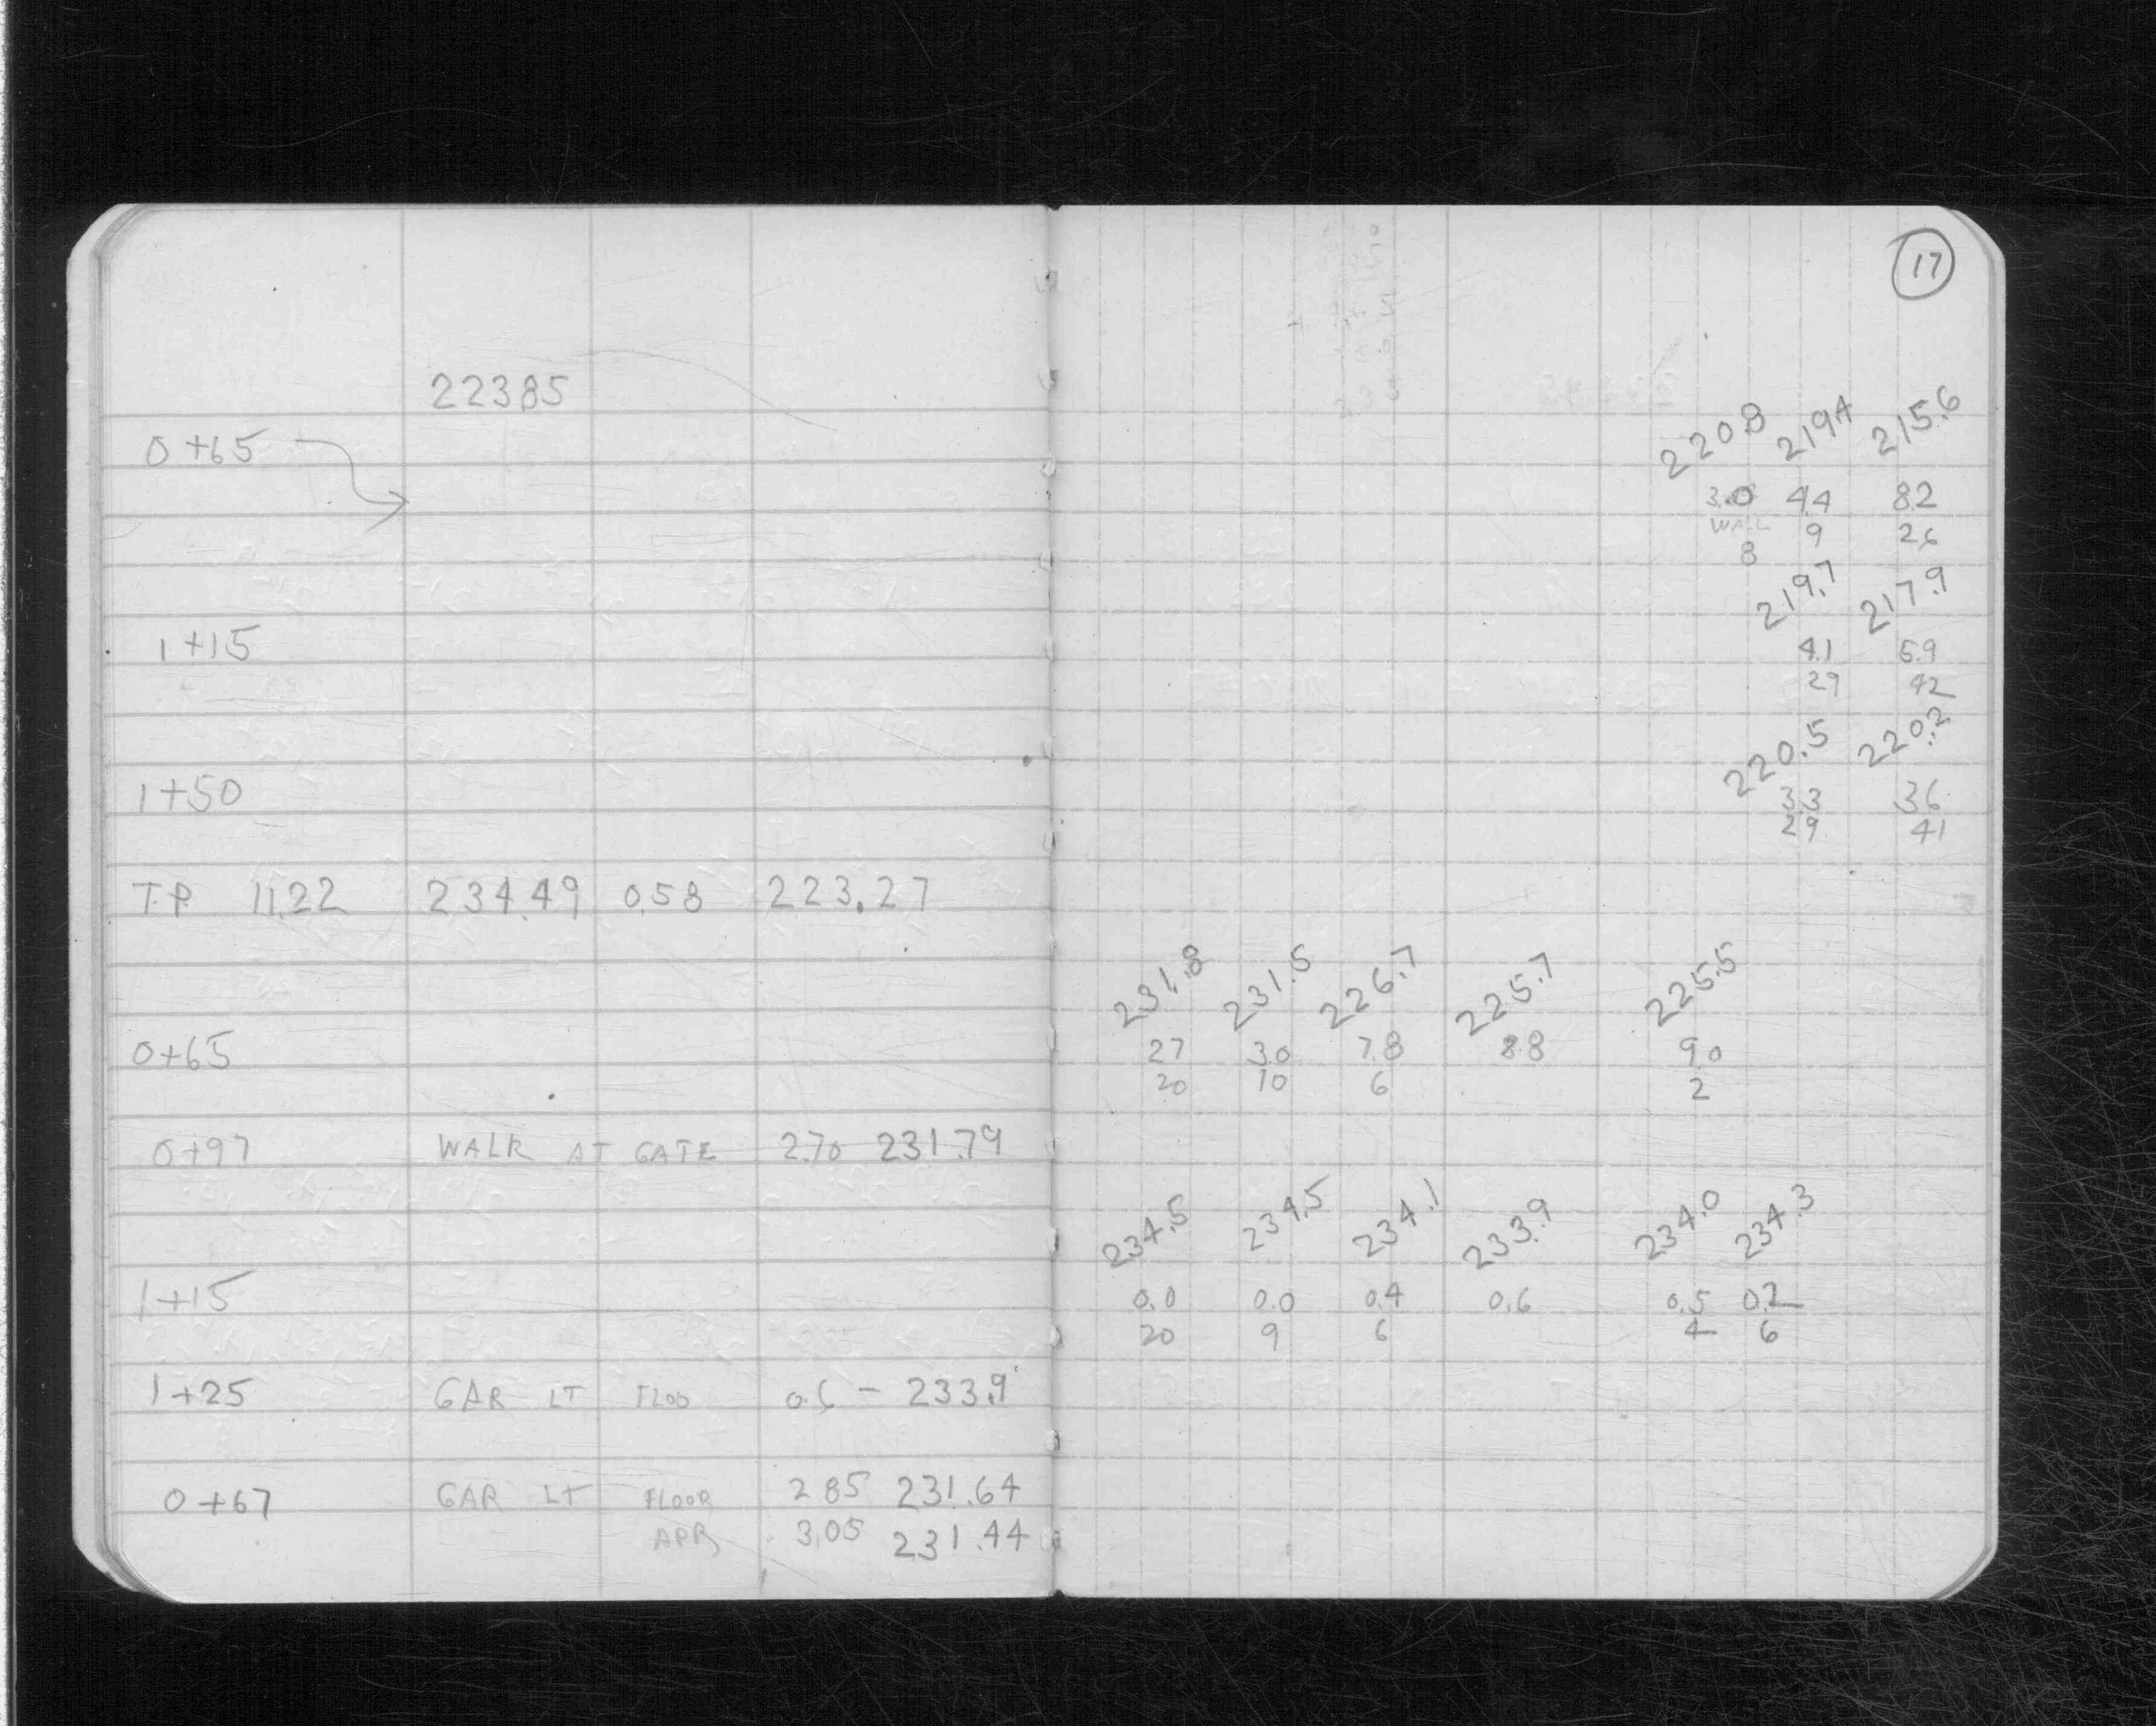 17
22385
0+65
220.8 219.4 215.6
3.0 4.4 8.2
WALL 9 26
8
219.7 217.9
1+15 4.1 5.9
29 42
220.5 220.2
1+50 3.3 3.6
29 41
T.P. 11.22 234.49 0.58 223.27
231.8 231.5 226.7 225.7 225.5
0+65 2.7 3.0 7.8 8.8 9.0
20 10 6 2
0+97 WALK AT GATE 2.70 231.79
234.5 234.5 234.1 233.9 234.0 234.3
1+15 0.0 0.0 0.4 0.6 0.5 0.2
20 9 6 4 6
1+25 GAR LT FLOO 0.6 - 233.9
0+67 GAR LT FLOOR 2.85 231.64
APR 3.05 231.44